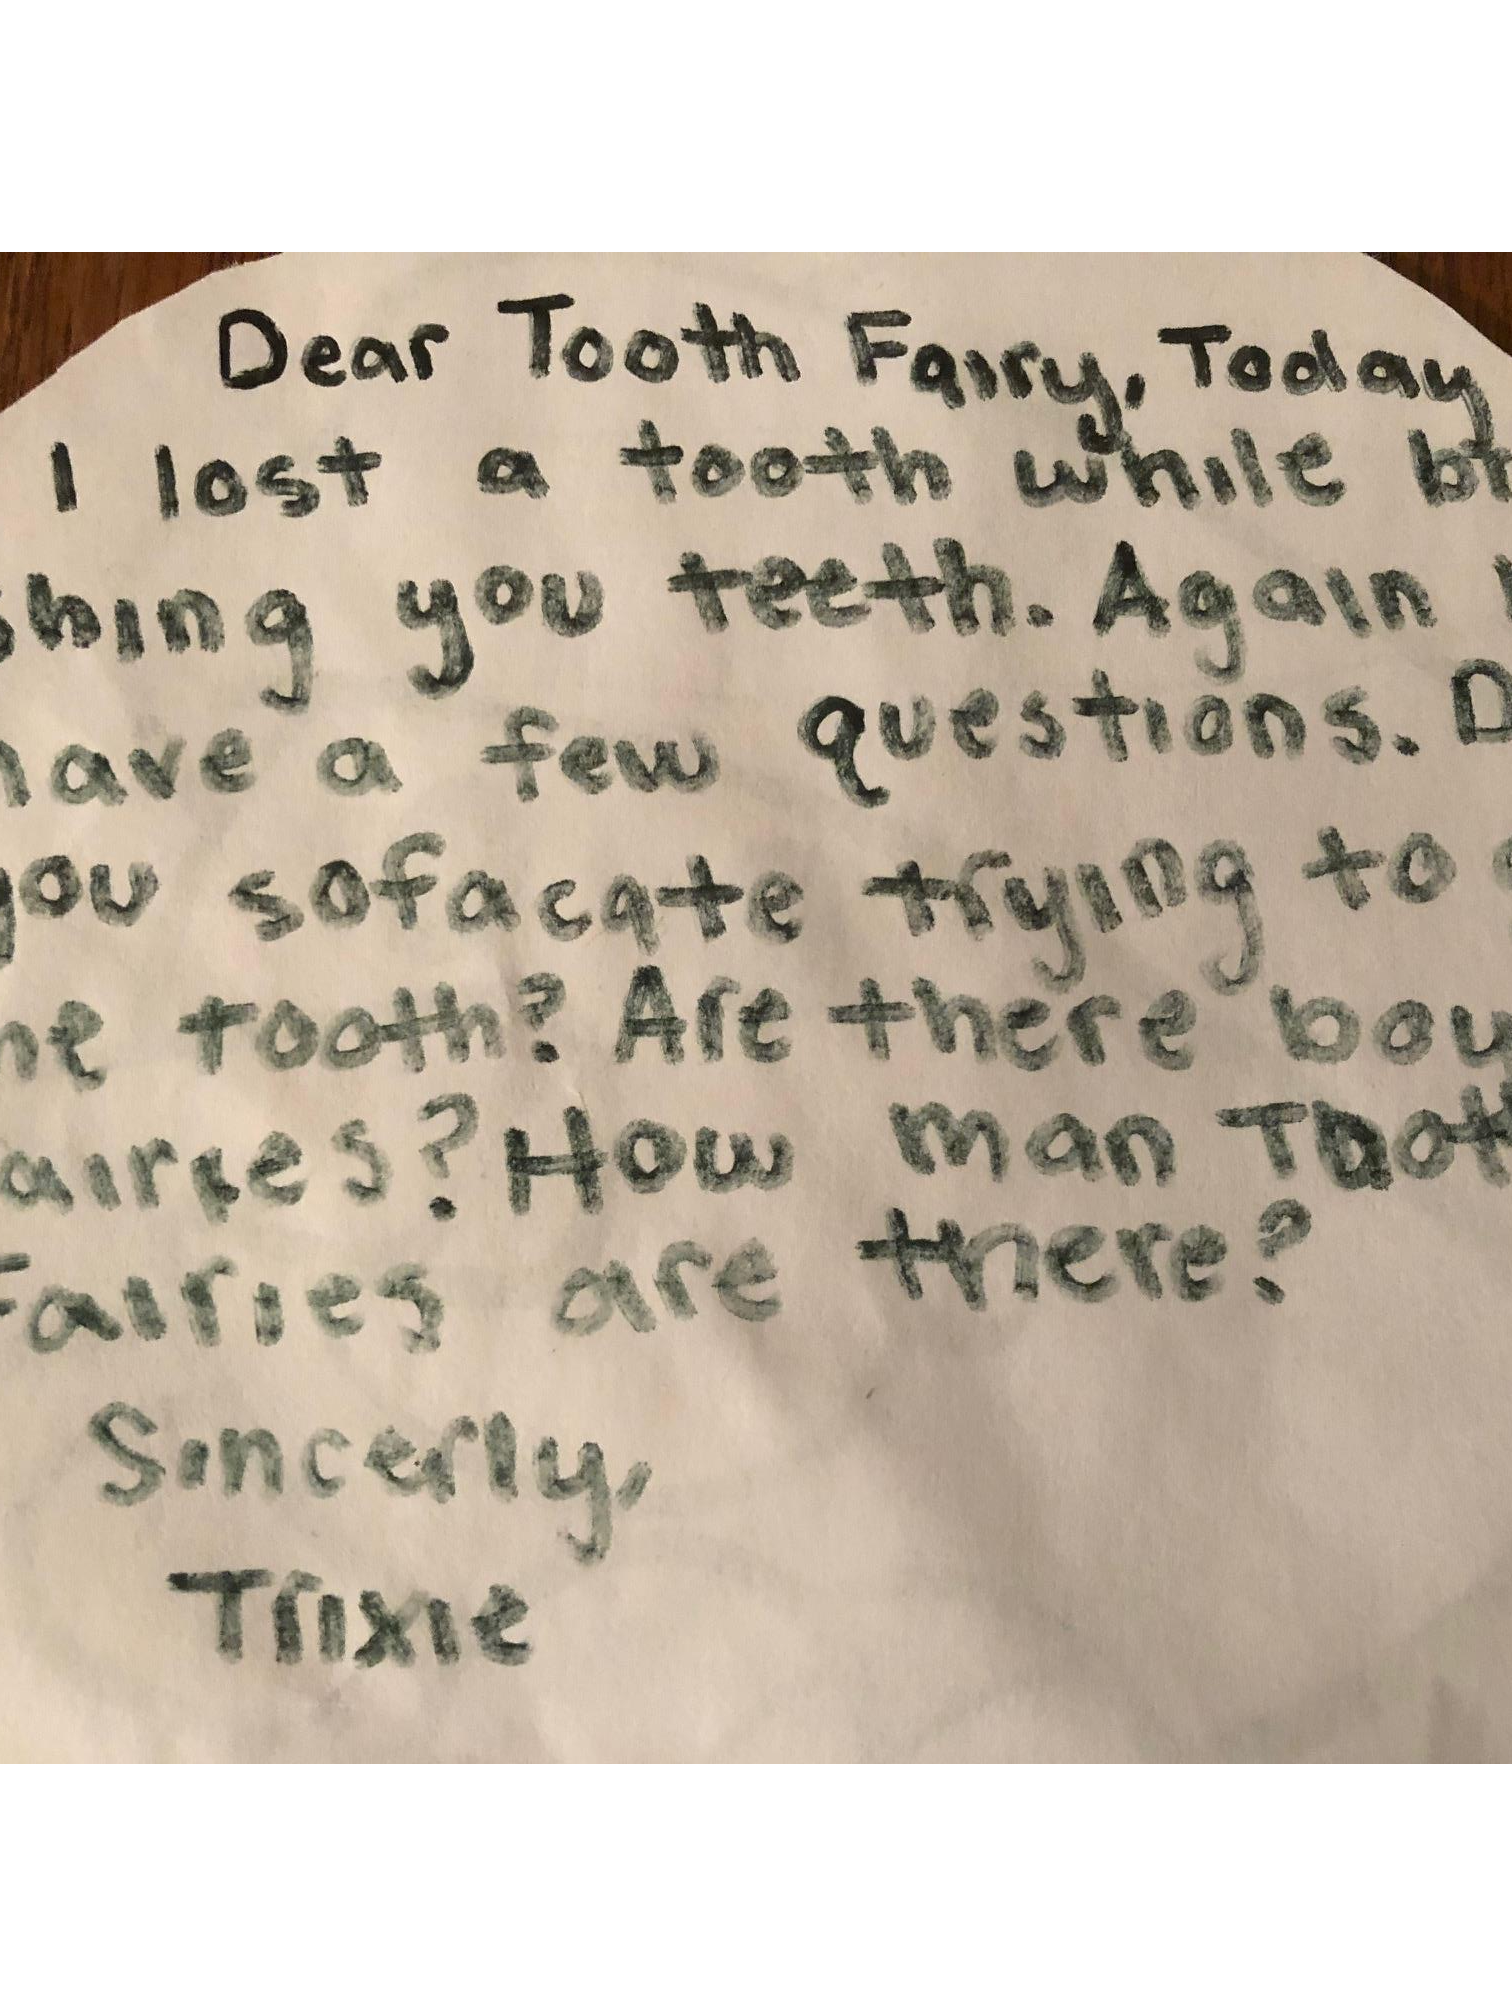 Dear Tooth Fairy, Today
I lost a tooth while br
shing you teeth. Again
have a few questions. D
you sofacate trying to
he tooth? Are there boy
airies? How man Tooth
Fairies are there?
Sincerly,
Trixie